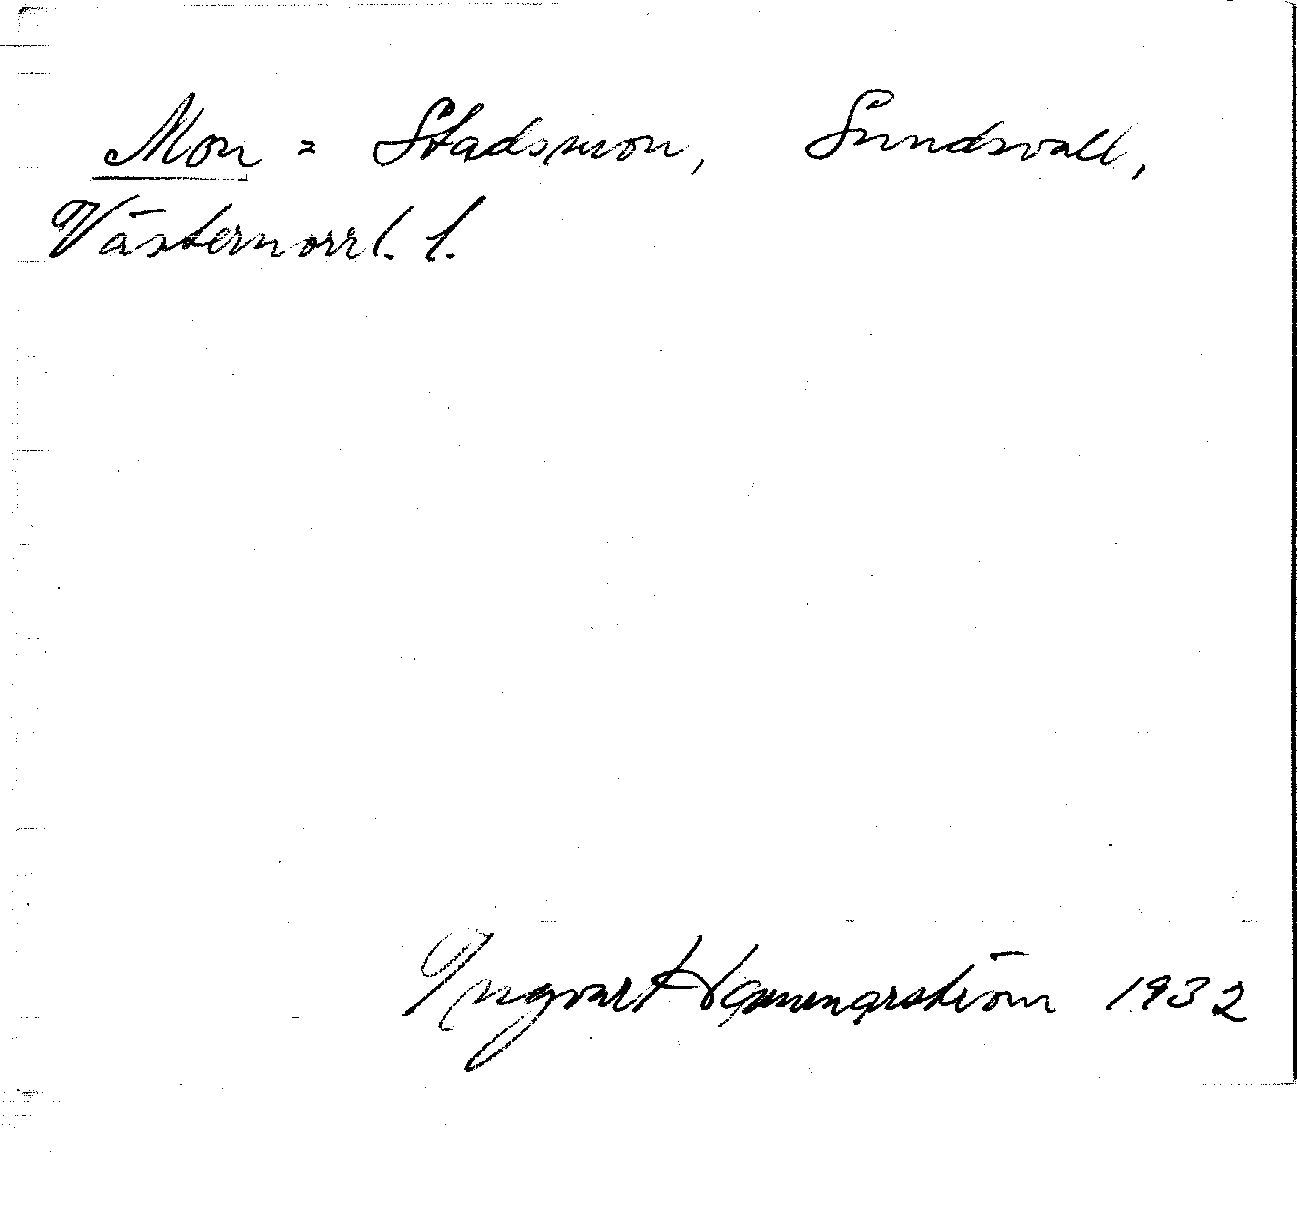 Mon = Stadsmon, Sundsvall,
Västernorrl. l.
Ingvar Hammarström 1932